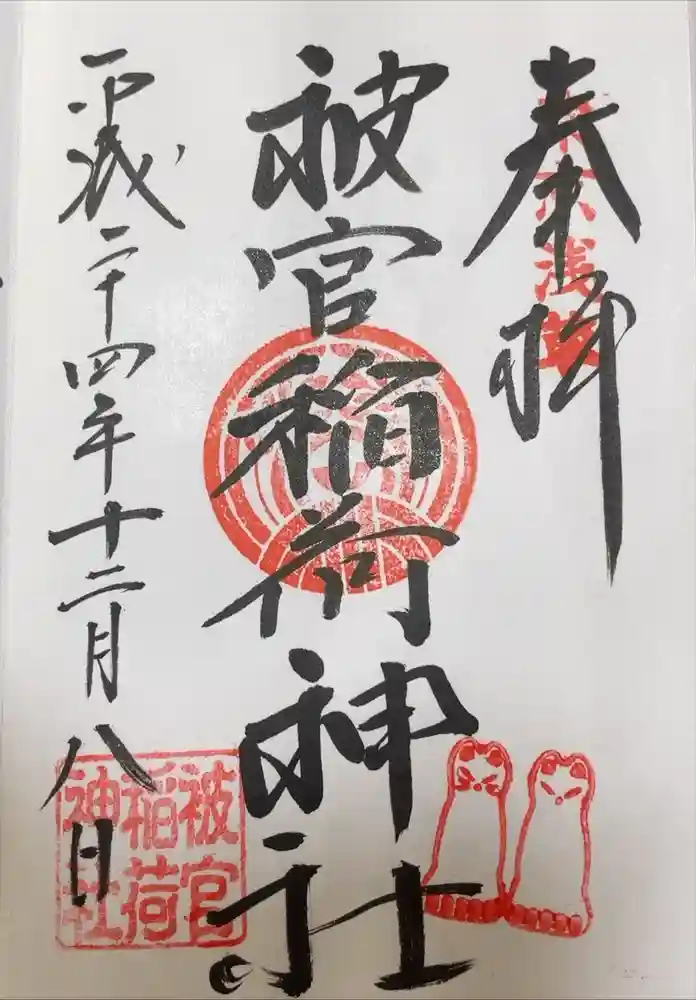 奉拝
東京浅草
被官稲荷神社
平成二十四年十二月八日
被官
稲荷
神社